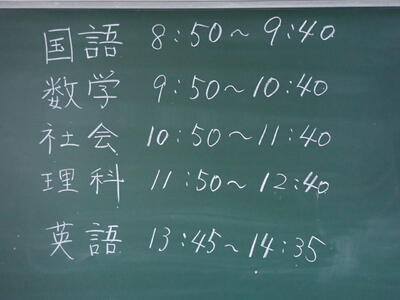 国語 8:50～9:40
数学 9:50～10:40
社会 10:50～11:40
理科 11:50～12:40
英語 13:45～14:35